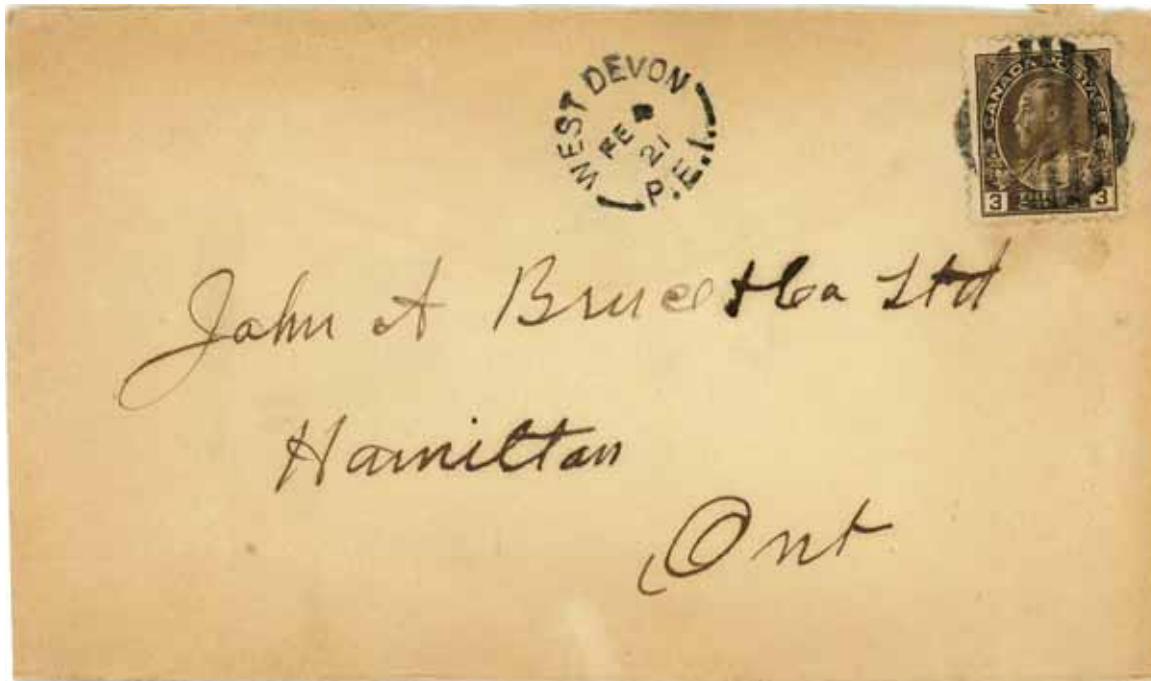 WEST DEVON
FE
21
P.E.I.
CANADA POSTAGE
3 3
John A Bruce & Co Ltd
Hamilton
Ont